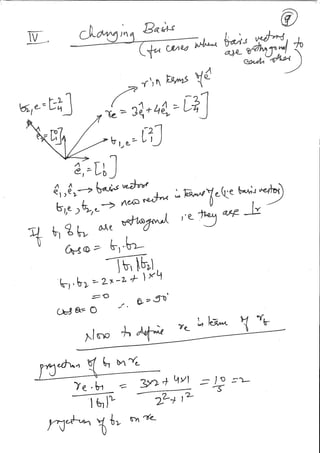 ⑨
IV Changing Basis
(for cases where basis vectors are orthogonal to each other)
r in terms of e
b₂,e = [-2 4]
re = 3ê₁ + 4ê₂ = [3 4]
ê₂ = [0 1]
b₁,e = [2 1]
ê₁ = [1 0]
ê₁, ê₂ → basis vector
b₁e, b₂,e → new vectors in terms of e (i.e basis vector)
If b₁ & b₂ are orthogonal i.e they are ⊥r
Cos θ = b₁.b₂
|b₁||b₂|
b₁.b₂ = 2x-2 + 1x4
= 0
Cos θ = 0 ∴ θ = 90°
Now to define re in term of rb
projection of b₁ on re
re.b₁ / |b₁|² = 3x2 + 4x1 / 2² + 1² = 10/5 = 2
projection of b₂ on re